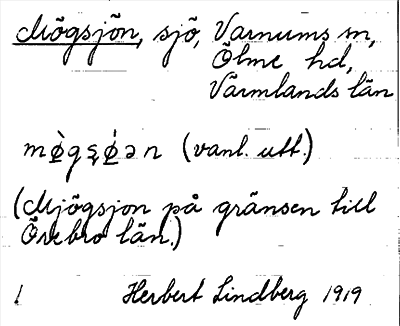 Mögsjön, sjö, Varnums sn,
Ölme hd,
Värmlands län
mø̀gʂǿən (vanl. utt.)
(Mjögsjon på gränsen till
Örebro län.)
1 Herbert Lindberg 1919